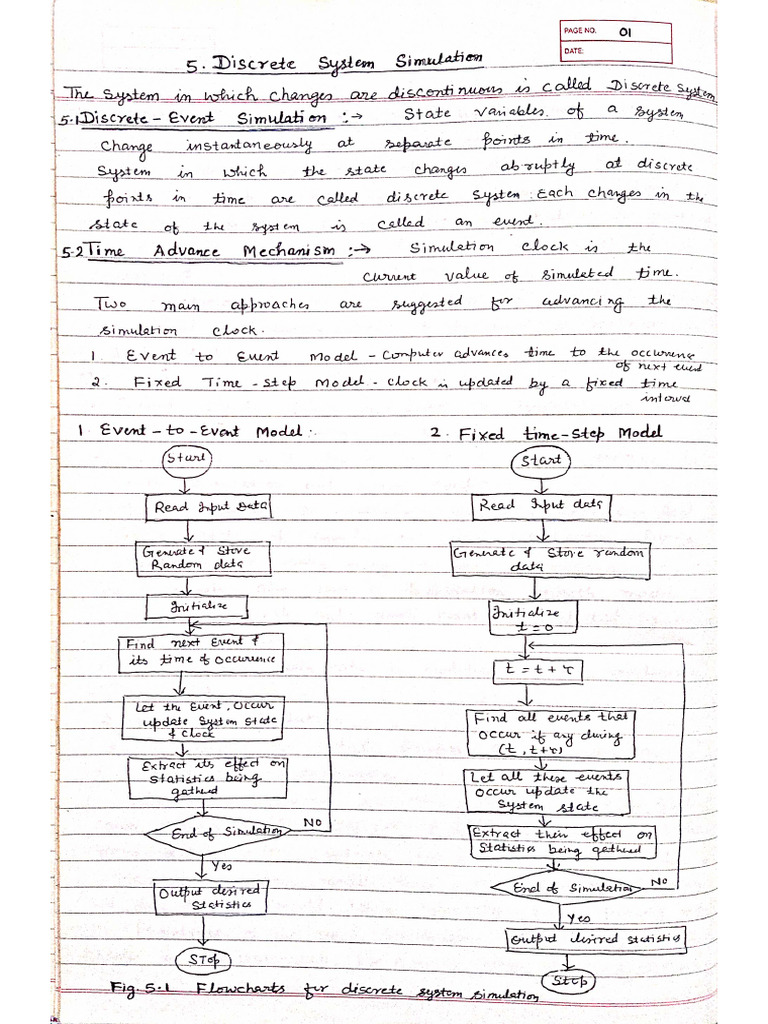 PAGE NO. 01
DATE:
5. Discrete System Simulation
The System in which changes are discontinuous is called Discrete System
5.1 Discrete - Event Simulation :→ State variables of a system
change instantaneously at separate points in time.
System in which the state changes abruptly at discrete
points in time are called discrete System. Each changes in the
state of the system is called an event.
5.2 Time Advance Mechanism :→ Simulation clock is the
current value of simulated time.
Two main approaches are suggested for advancing the
simulation clock.
1. Event to Event Model - Computer advances time to the occurrence
of next event
2. Fixed Time - step Model - clock is updated by a fixed time
interval
1 Event - to - Event Model :
Start
Read Input Data
Generate & Store
Random data
Initialize
Find next Event &
its time of occurrence
Let the Event, Occur
update System state
& Clock
Extract its effect on
Statistics being
gathered
End of Simulation
NO
Yes
Output desired
Statistics
STop
2. Fixed time - Step Model
Start
Read Input data
Generate & Store random
data
Initialize
t = 0
t = t + τ
Find all events that
occur if any during
(t, t+τ)
Let all these events
occur update the
System state
Extract their effect on
Statistics being gathered
End of Simulation
No
Yes
Output desired statistics
Stop
Fig. 5.1 Flowcharts for discrete system simulation